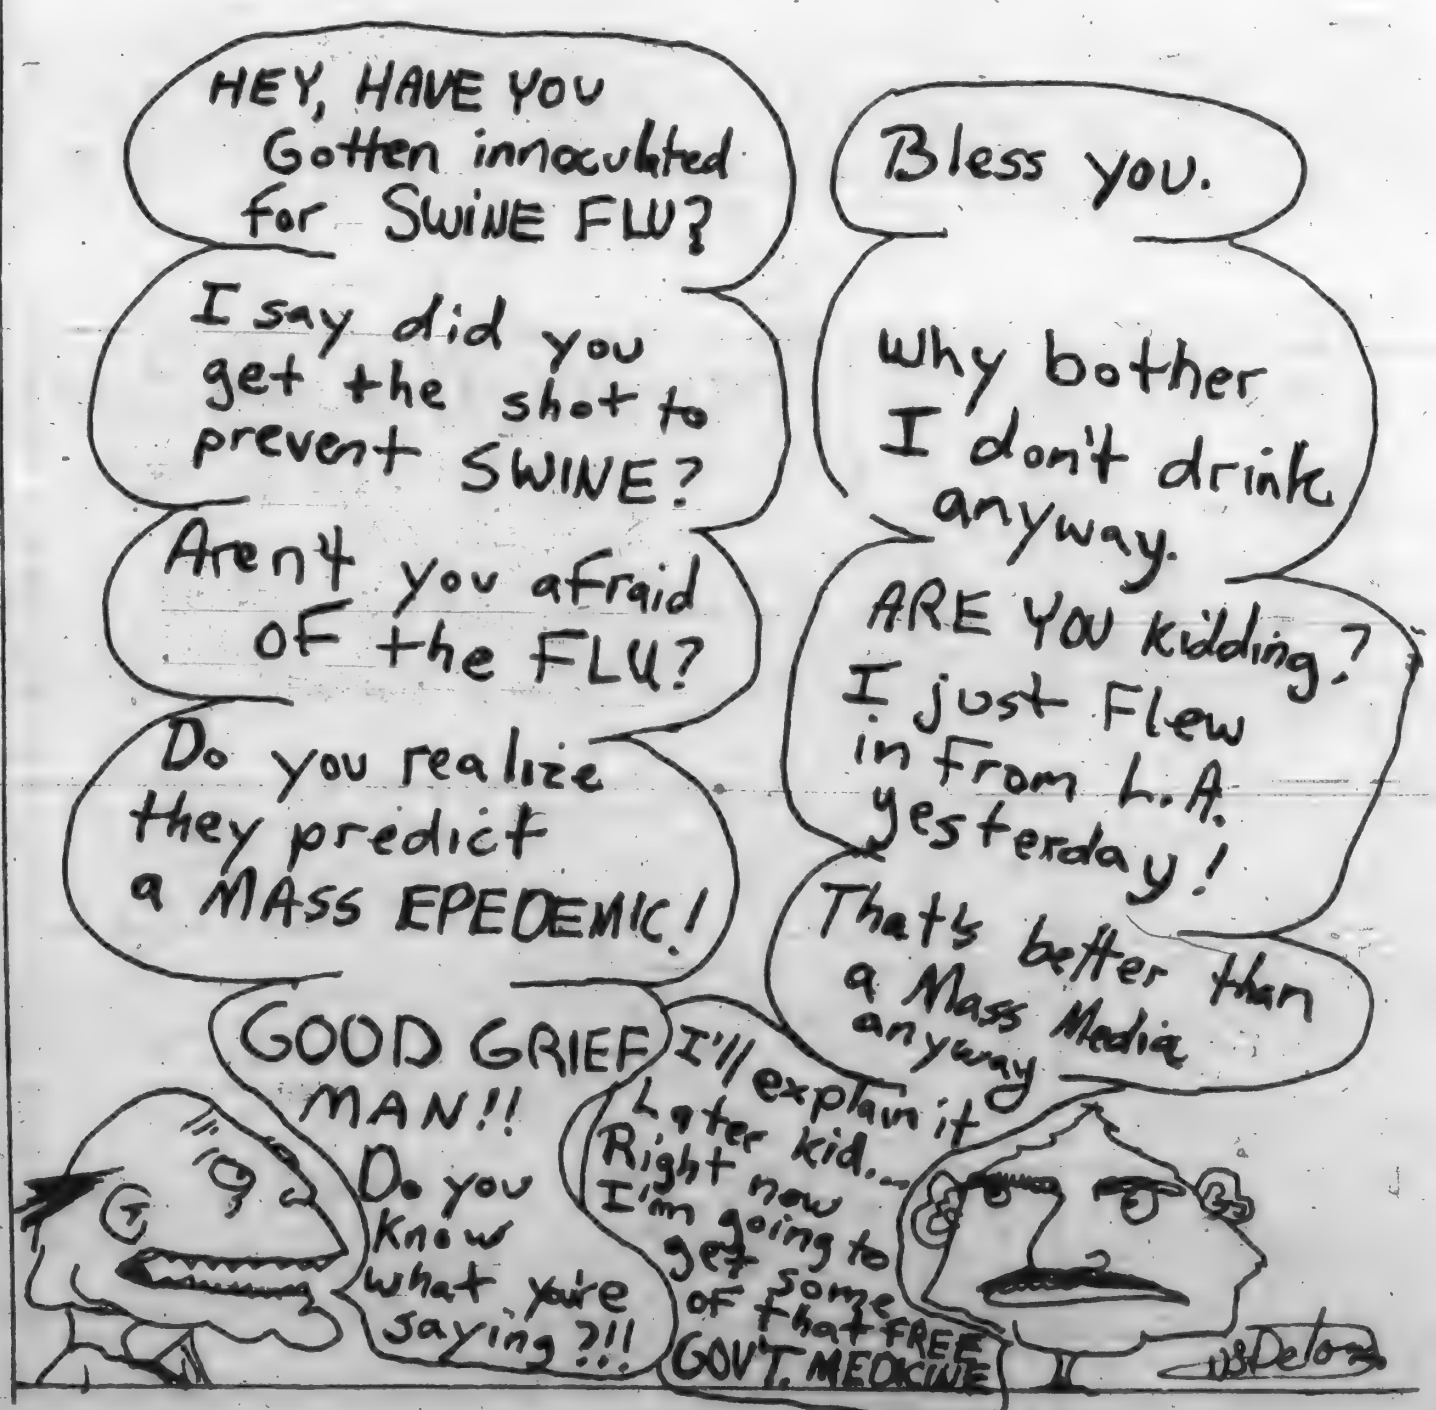 HEY, HAVE YOU
Gotten innoculated
for SWINE FLU?
Bless you.
I say did you
get the shot to
prevent SWINE?
Why bother
I don't drink
anyway.
Aren't you afraid
OF the FLU?
ARE YOU kidding?
I just Flew
in from L.A.
yesterday!
Do you realize
they predict
a MASS EPEDEMIC!
That's better than
a Mass Media
anyway
GOOD GRIEF
MAN!!
Do you
know
what you're
saying?!!
I'll explain it
Later kid...
Right now
I'm going to
get some
of that FREE
GOV'T. MEDICINE